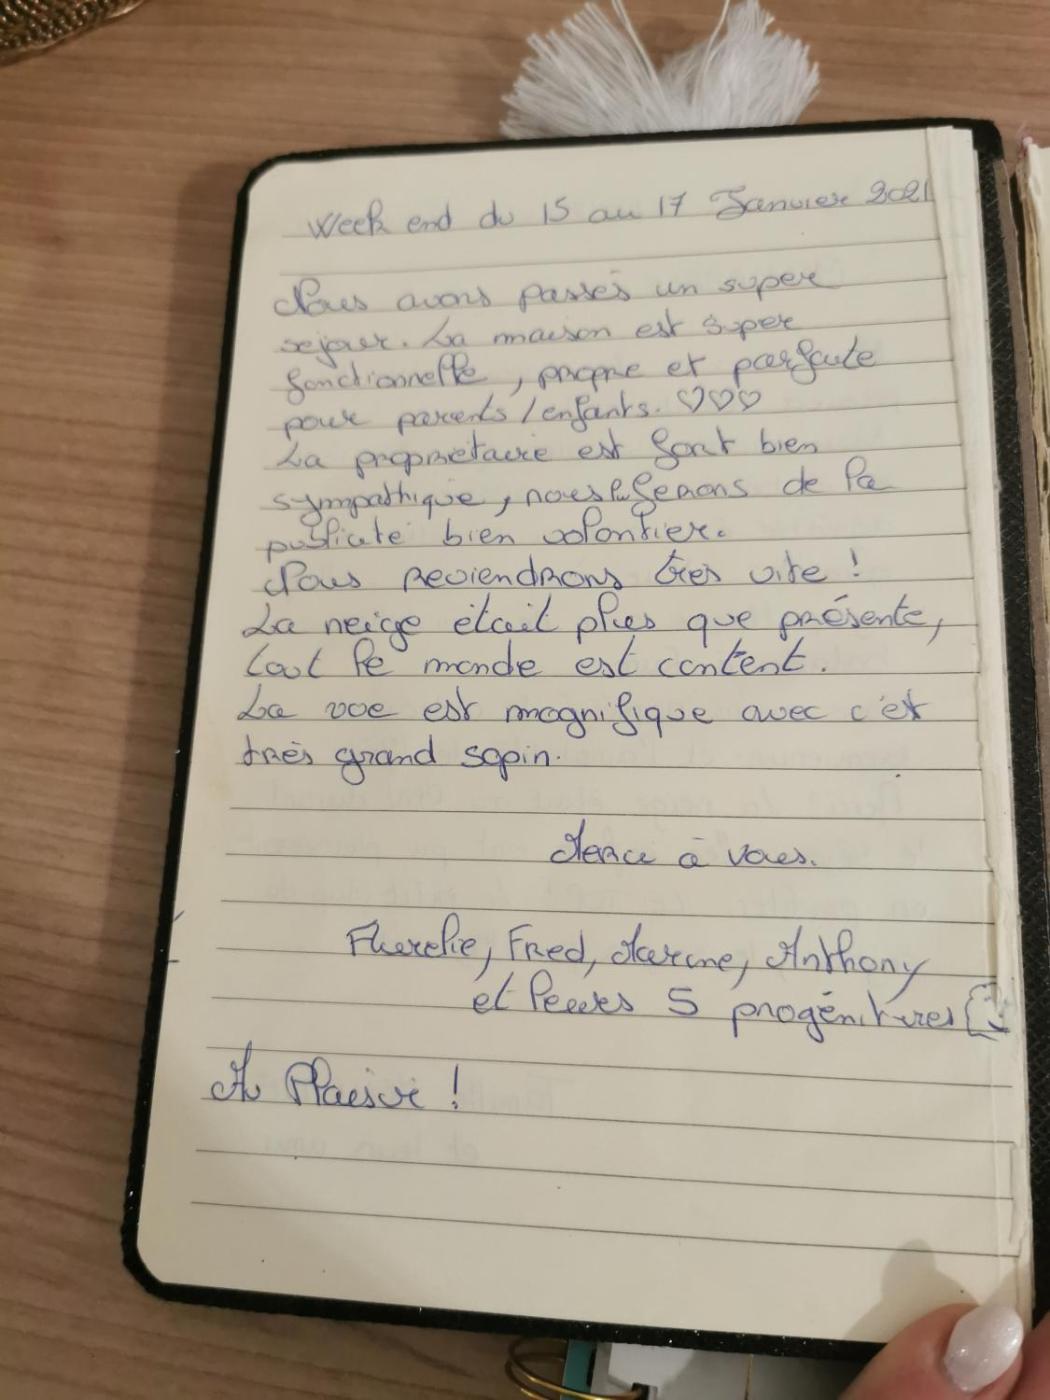 Week end du 15 au 17 Janvier 2021
Nous avons passés un super
sejour. La maison est super
fonctionnelle, propre et parfaite
pour parents/enfants. ♡♡♡
La propriétaire est fort bien
sympathique, nous ferons de la
publicité bien volontier.
Nous reviendrons très vite !
La neige était plus que présente,
tout le monde est content.
La vue est magnifique avec c'est
très grand sapin.
Merci à vous.
Aurelie, Fred, Karine, Anthony
et leurs 5 progénitures
Au Plaisir !